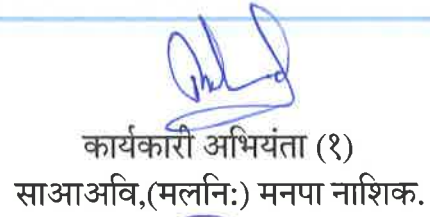 कार्यकारी अभियंता (१)
साआअवि,(मलनि:) मनपा नाशिक.